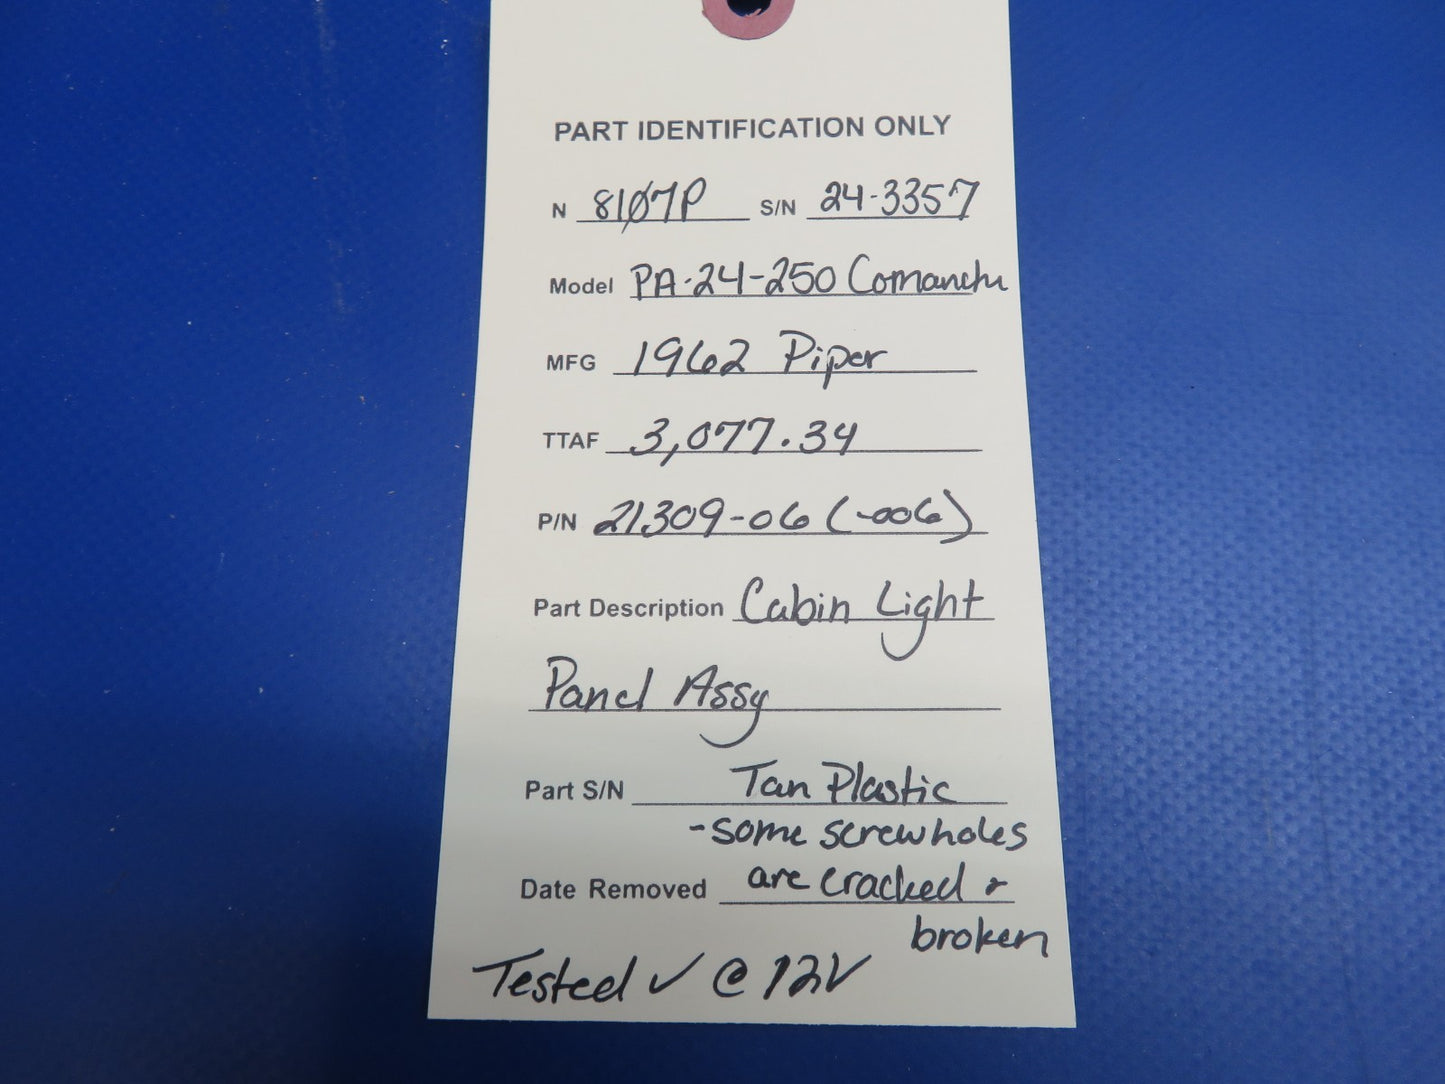 PART IDENTIFICATION ONLY
N 8107P S/N 24-3357
Model PA-24-250 Comanche
MFG 1962 Piper
TTAF 3,077.34
P/N 21309-06 (-006)
Part Description Cabin Light
Panel Assy
Part S/N Tan Plastic
-some screwholes
Date Removed are cracked &
broken
Tested ✓ @ 12V